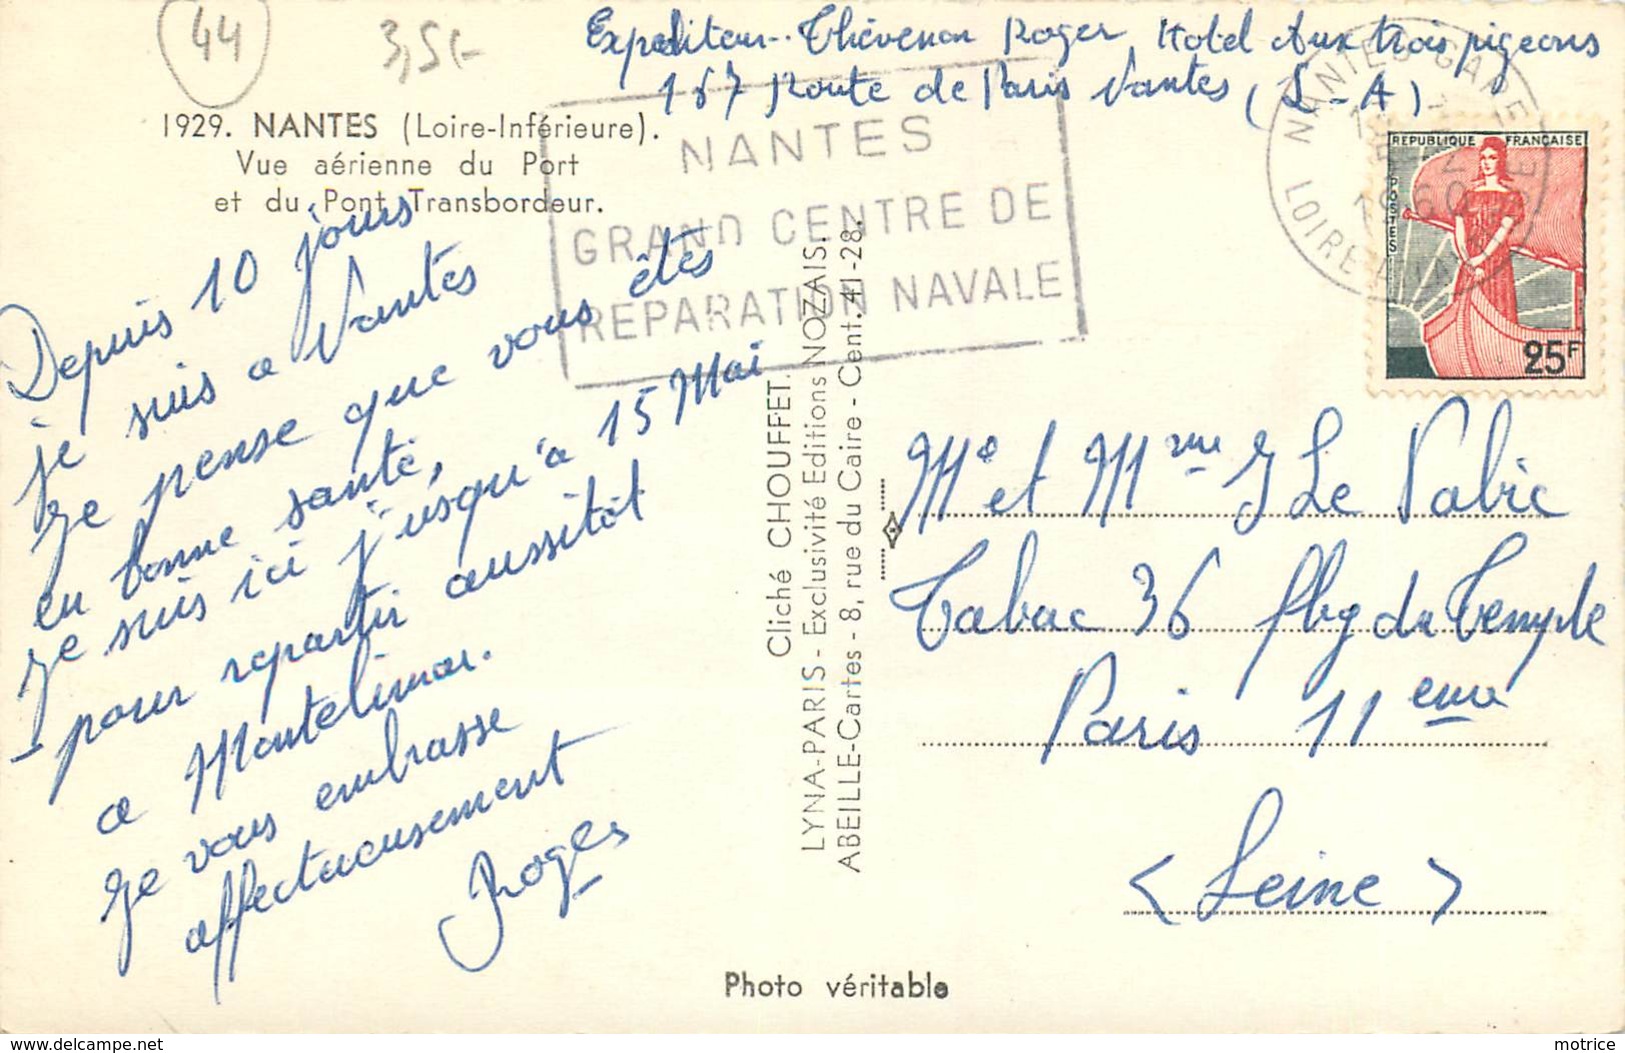 44
3,5€
Expediteur.. Thévenon Roger Hotel Aux trois pigeons
167 Route de Paris Nantes (L-A)
1929. NANTES (Loire-Inférieure).
Vue aérienne du Port
et du Pont Transbordeur.
NANTES
GRAND CENTRE DE
REPARATION NAVALE
NANTES GARE
1960
LOIRE
REPUBLIQUE FRANÇAISE
POSTES
25F
Depuis 10 jours
je suis a Nantes
Je pense que vous êtes
en bonne santé,
Je suis ici j'usqu'a 15 Mai
pour repartir aussitôt
a Montelimar.
Je vous embrasse
affectueusement
Roger
Cliché CHOUFFET.
LYNA-PARIS - Exclusivité Editions NOZAIS.
ABEILLE-Cartes - 8, rue du Caire - Cent. 41-28.
Mr et Mme J Le Vabic
Tabac 36 fbg du Temple
Paris 11eme
<Seine>
Photo véritable
motrice